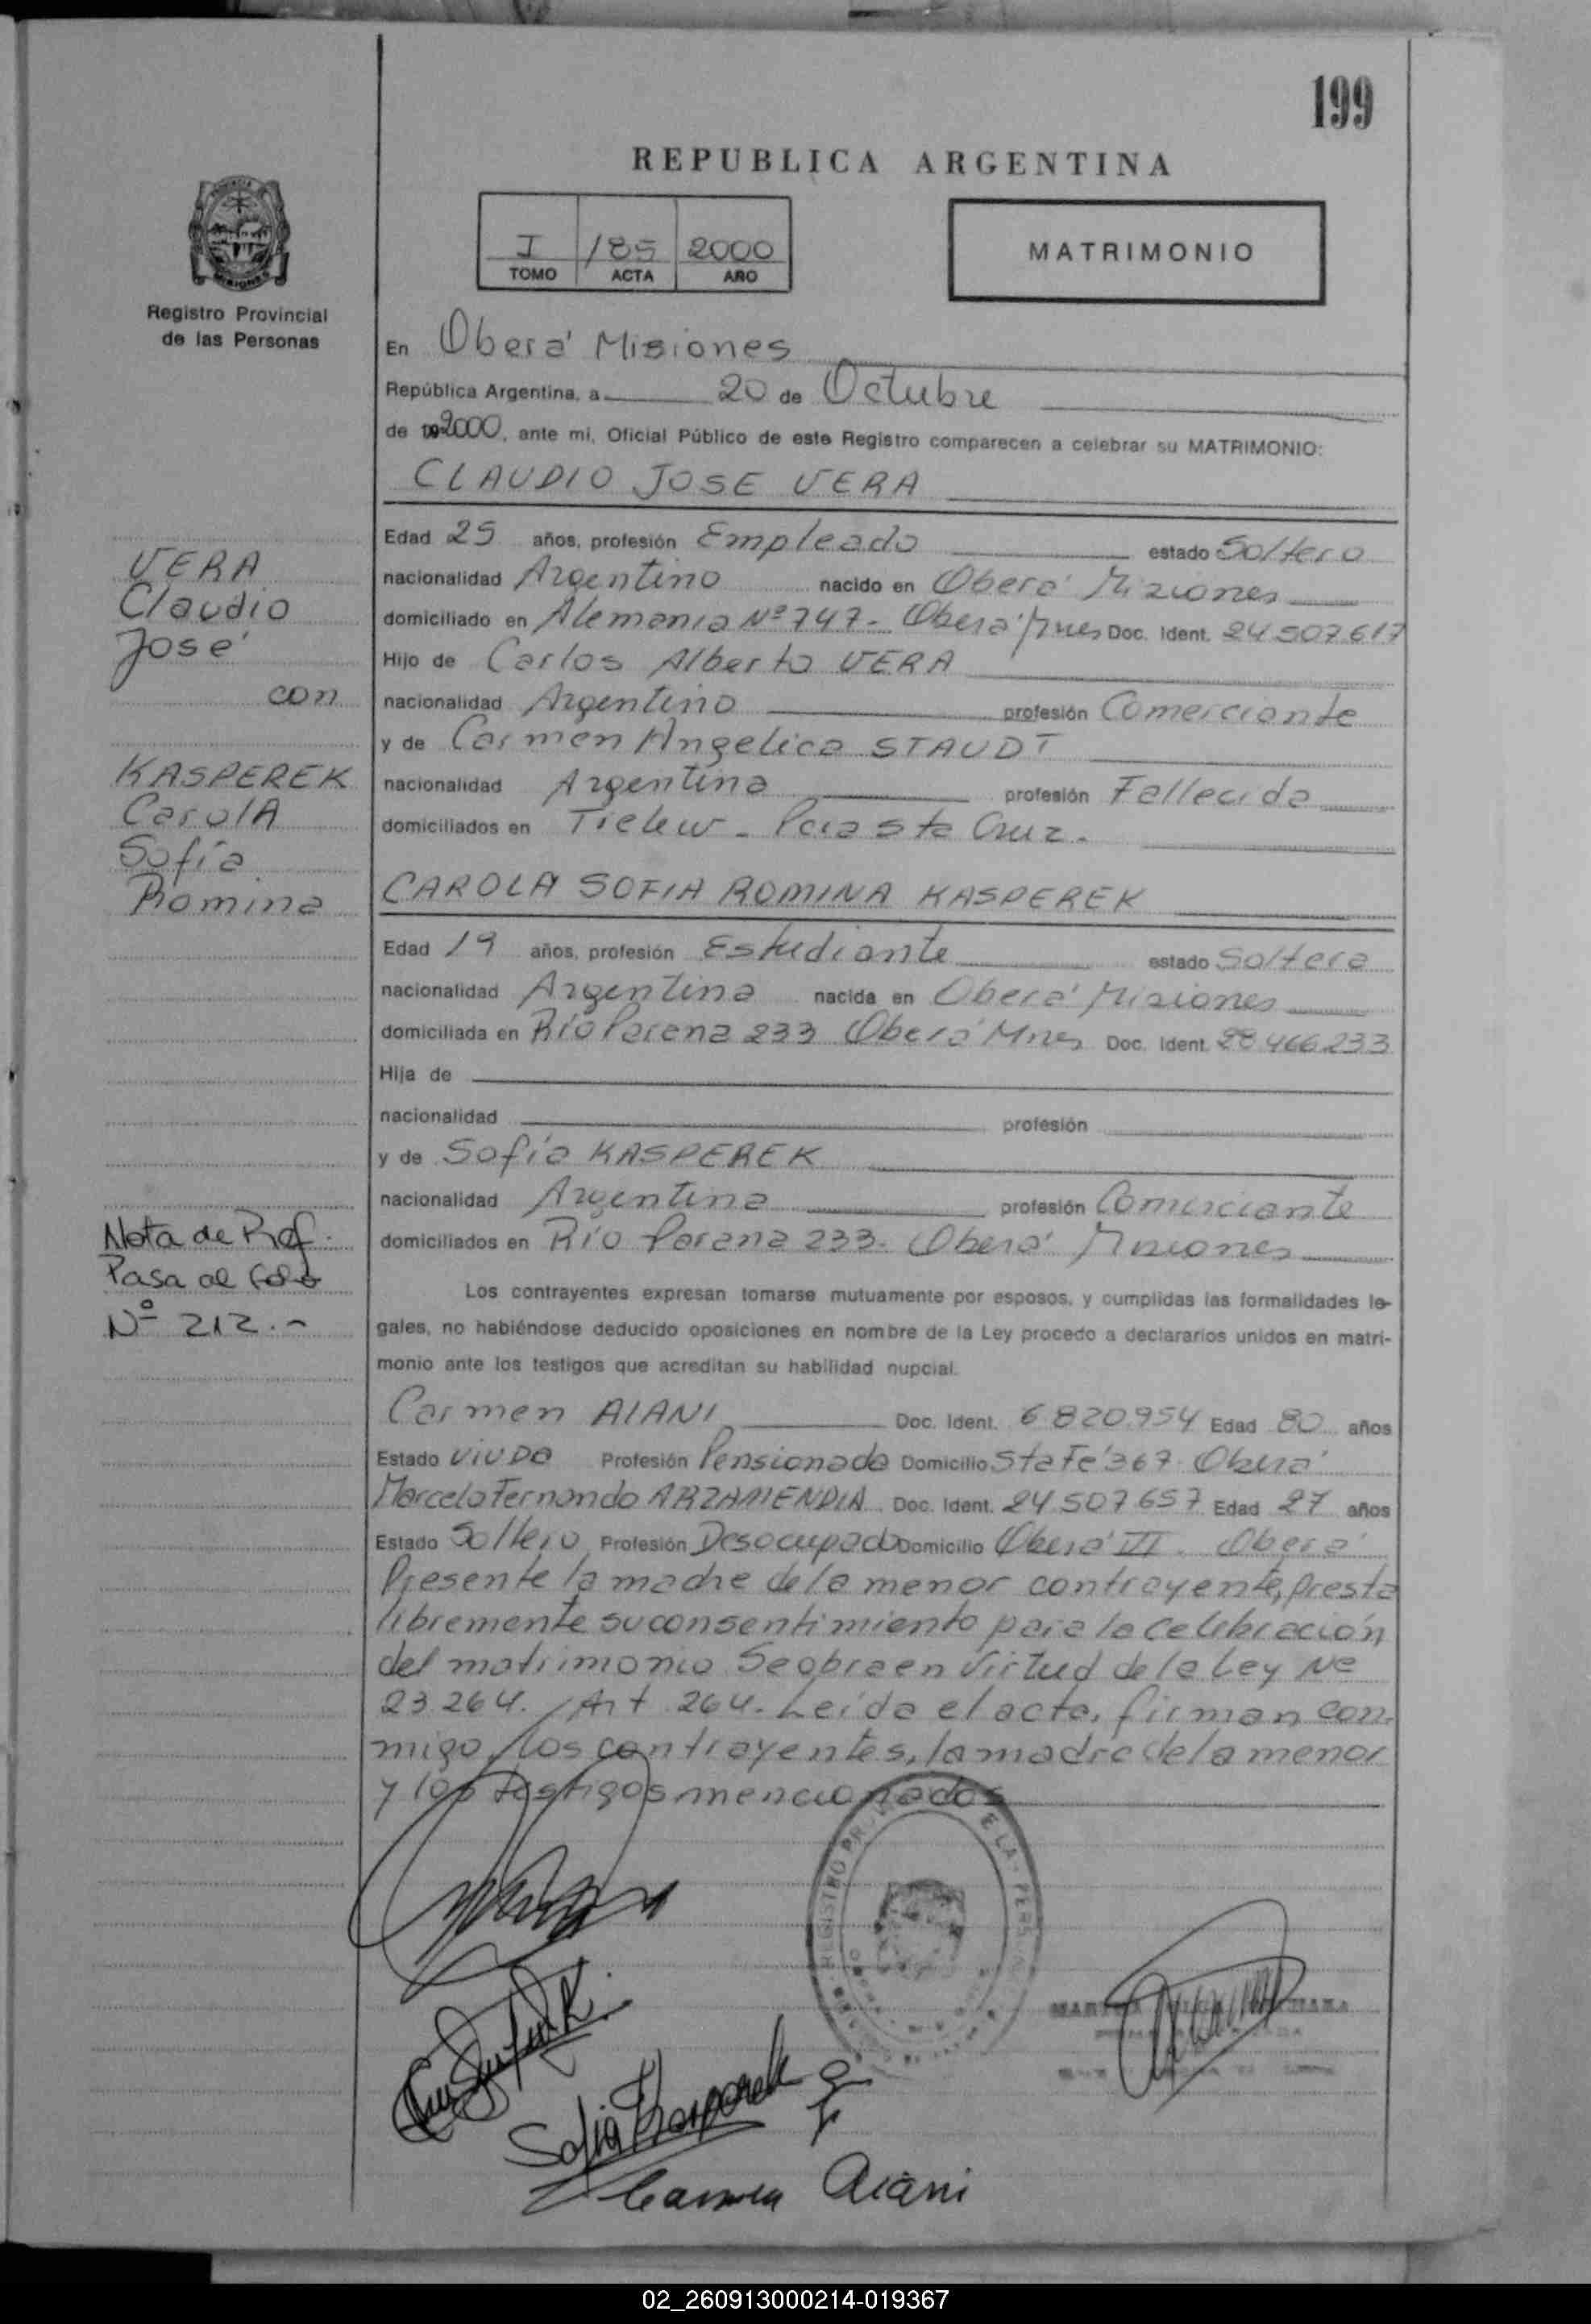 199
REPUBLICA ARGENTINA
I 185 2000
TOMO ACTA AÑO
MATRIMONIO
Registro Provincial
de las Personas
En Oberá Misiones
República Argentina, a 20 de Octubre
de 2000, ante mi, Oficial Público de este Registro comparecen a celebrar su MATRIMONIO:
CLAUDIO JOSE VERA
Edad 25 años, profesión Empleado estado Soltero
nacionalidad Argentino nacido en Oberá Misiones
domiciliado en Alemania Nº 747- Oberá Mnes Doc. Ident. 24 507.617
Hijo de Carlos Alberto VERA
nacionalidad Argentino profesión Comerciante
y de Carmen Angelica STAUDT
nacionalidad Argentina profesión Fallecida
domiciliados en Trelew - Pcia Sta Cruz.
VERA
Claudio
José
con
KASPEREK
CarolA
Sofía
Romina
CAROLA SOFIA ROMINA KASPEREK
Edad 19 años, profesión Estudiante estado Soltera
nacionalidad Argentina nacida en Oberá Misiones
domiciliada en Río Parana 233 Oberá Mnes Doc. Ident. 28 466 233
Hija de
nacionalidad profesión
y de Sofía KASPEREK
nacionalidad Argentina profesión Comerciante
domiciliados en Río Parana 233- Oberá Misiones
Nota de Ref.
Pasa al folio
Nº 212.-
Los contrayentes expresan tomarse mutuamente por esposos, y cumplidas las formalidades le-
gales, no habiéndose deducido oposiciones en nombre de la Ley procedo a declararlos unidos en matri-
monio ante los testigos que acreditan su habilidad nupcial.
Carmen AIANI Doc. Ident. 6 820.954 Edad 80 años
Estado Viuda Profesión Pensionada Domicilio Sta Fé 367 Oberá
Marcelo Fernando ARZAMENDIA Doc. Ident. 24 507 657 Edad 27 años
Estado Soltero Profesión Desocupado Domicilio Oberá VI. Oberá
Presente la madre de la menor contrayente, presta
libremente su consentimiento para la celebración
del matrimonio Se obra en Virtud de la Ley Nº
23 264. Art. 264. Leída el acta, firman con-
migo, los contrayentes, la madre de la menor
y los testigos mencionados
REGISTRO
Sofia Kasperek
Carmen Aiani
02_260913000214-019367